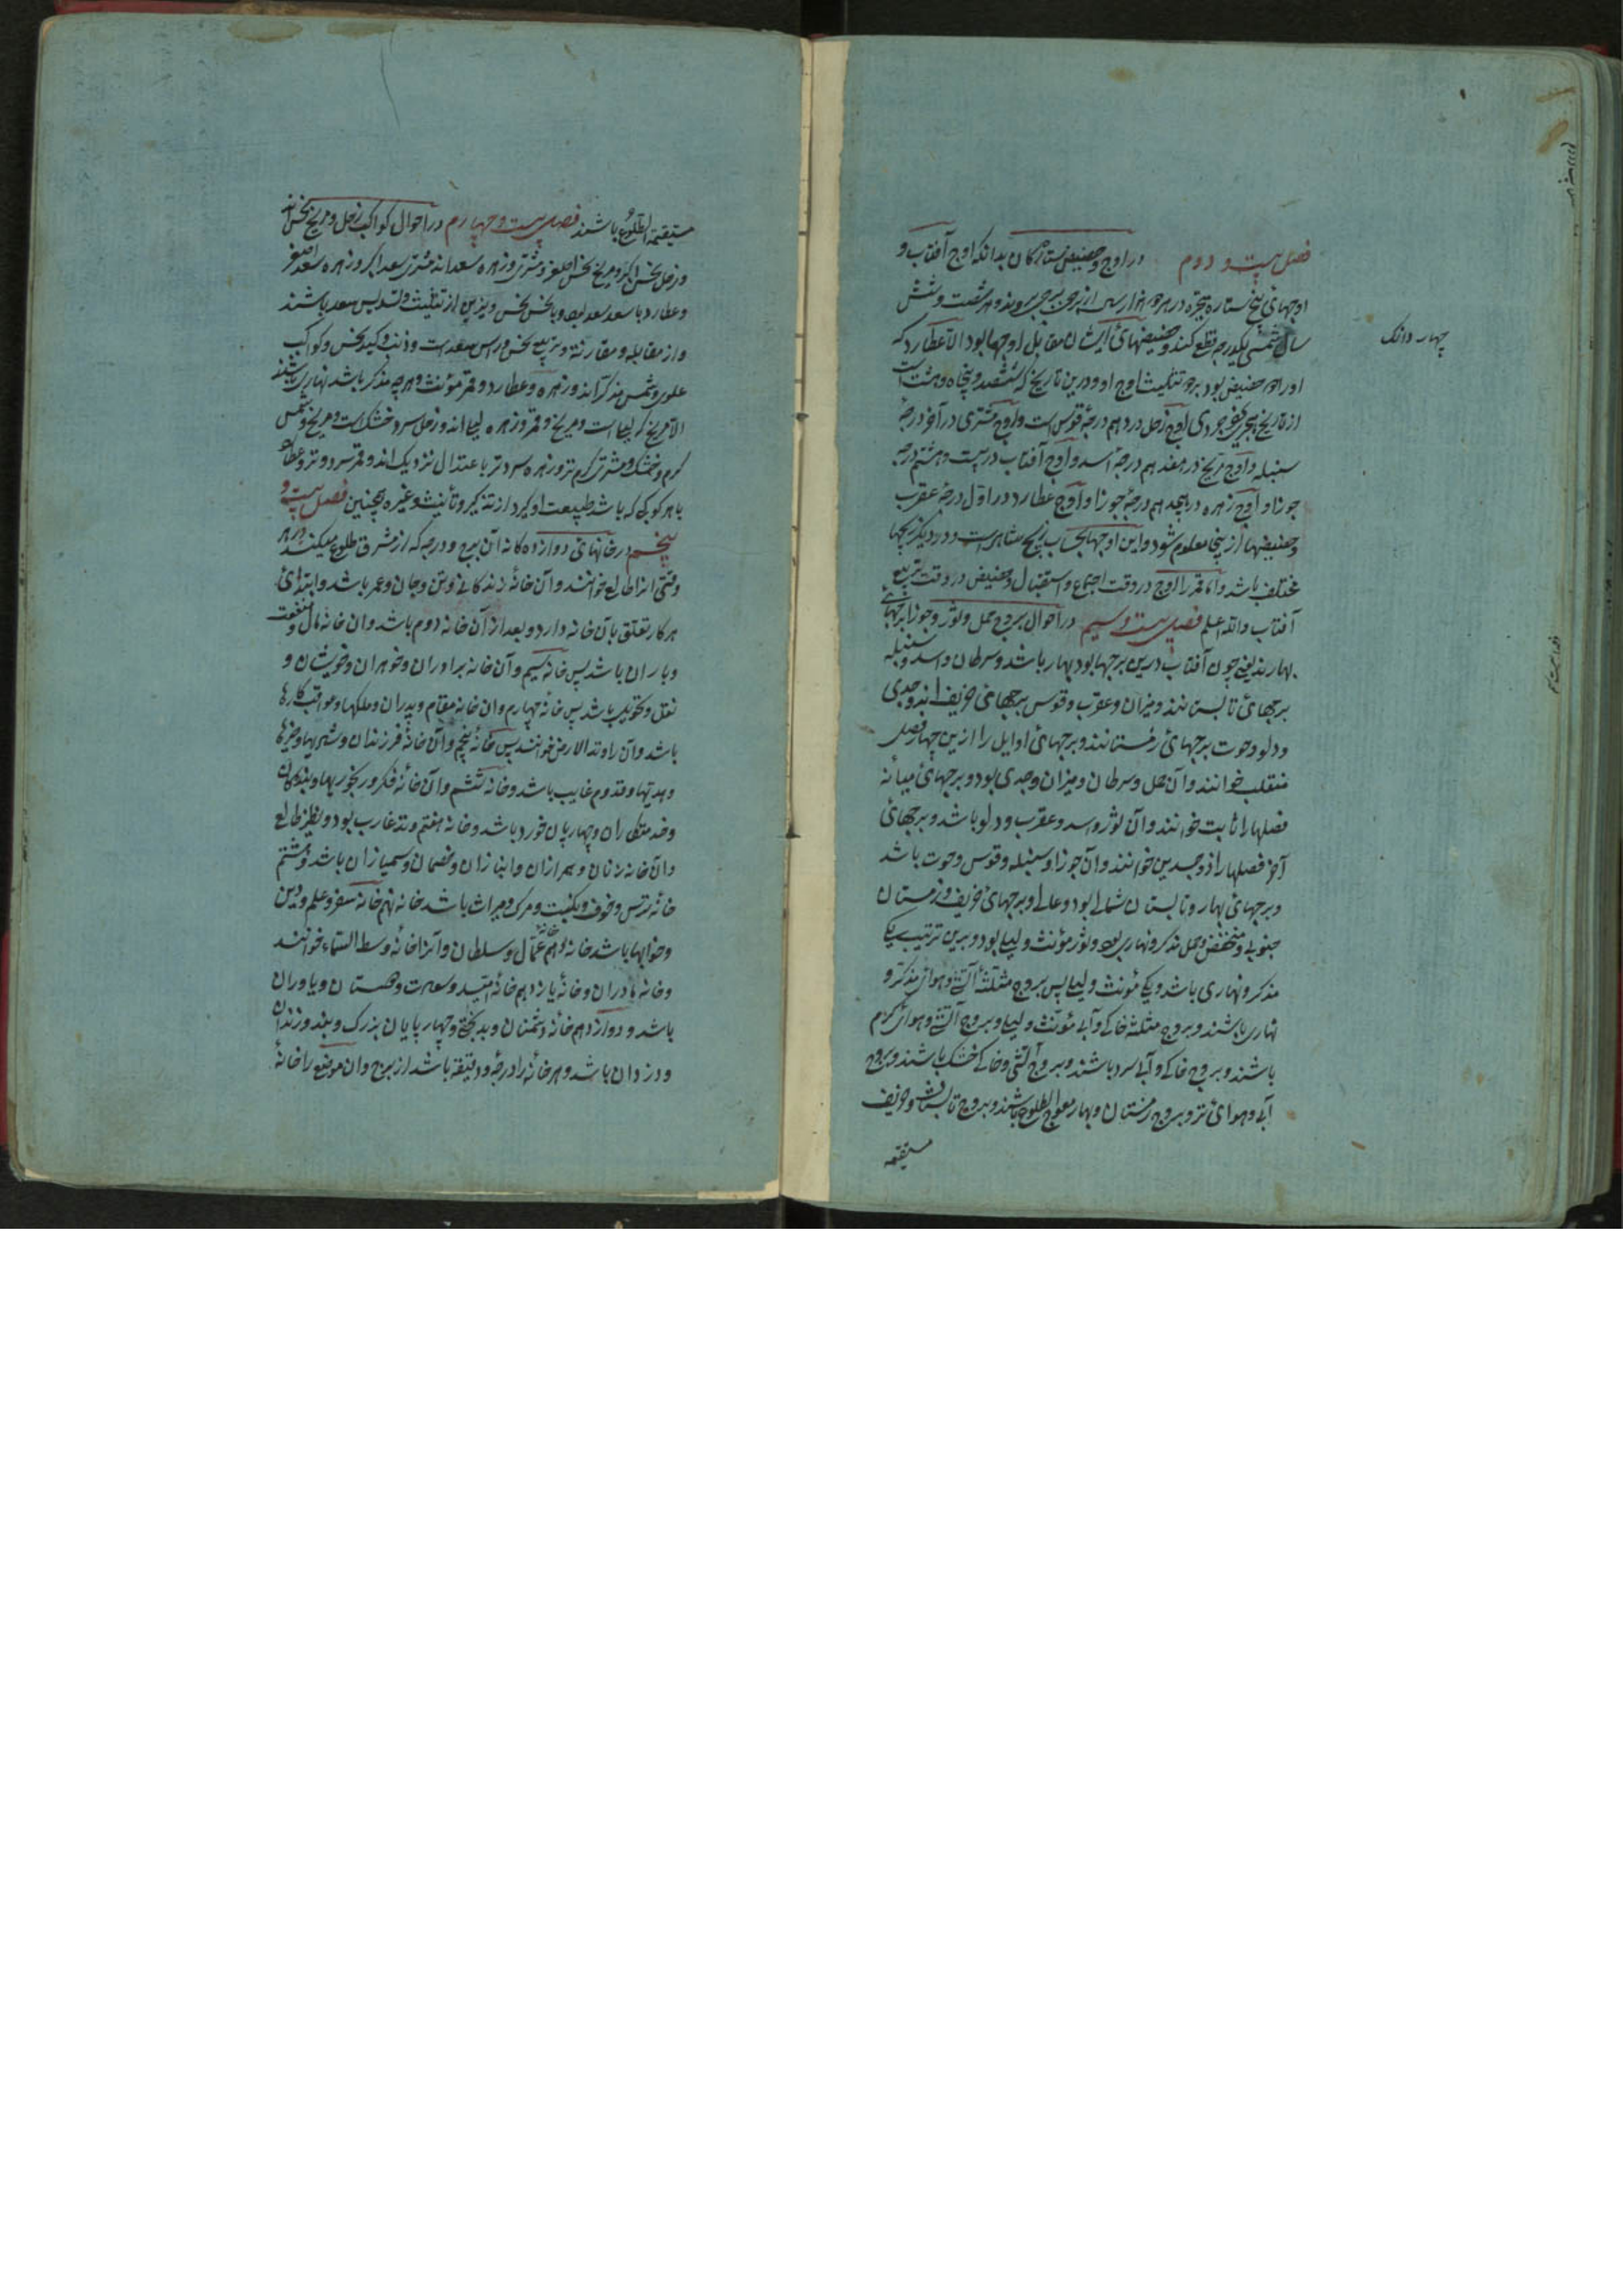 فصل بیست و دوم در اوج و حضیض ستارگان بدانکه اوج آفتاب و
اوجهای پنج ستاره متحیره در هر دو هزار سال از برجی ببرجی روند و در شصت و شش
سال شمسی یکدرجه قطع کنند و حضیضهای ایشان مقابل اوجها بود الا عطارد که
او را دو حضیض بود بر دو تثلیث اوج او و درین تاریخ که ششصد و پنجاه و هشت است
از تاریخ هجری یزدجردی اوج زحل در دهم درجه قوس است و اوج مشتری در آخر درجه
سنبله و اوج مریخ در هفدهم درجه اسد و اوج آفتاب در بیست و هشتم درجه
جوزا و اوج زهره در هجدهم درجه جوزا و اوج عطارد در اول درجه عقرب
و حضیضها ازینجا معلوم شود و این اوجها بحساب زیج شاهی است و در دیگر زیجها
مختلف باشد و اما قمر را اوج در وقت اجتماع و استقبال و حضیض در وقت تربیع
آفتاب والله اعلم فصل بیست و سیم در احوال بروج حمل و ثور و جوزا برجهای
بهارند یعنی چون آفتاب درین برجها بود بهار باشد و سرطان و اسد و سنبله
برجهای تابستانند و میزان و عقرب و قوس برجهای خریف اند و جدی
و دلو و حوت برجهای زمستانند و برجهای اوایل را ازین چهار فصل
منقلب خوانند و آن حمل و سرطان و میزان و جدی بود و برجهای میانه
فصلها را ثابت خوانند و آن ثور و اسد و عقرب و دلو باشد و برجهای
آخر فصلها را ذو جسدین خوانند و آن جوزا و سنبله و قوس و حوت باشد
و برجهای بهار و تابستان شمالی بود و عالی و برجهای خریف و زمستان
جنوبی و منخفض و حمل مذکر و نهاری بود و ثور مؤنث و لیلی بود و برین ترتیب یکی
مذکر و نهاری باشد و یکی مؤنث و لیلی پس بروج مثلثه آتشی و هوای مذکر و
نهاری باشند و بروج مثلثه خاکی و آبی مؤنث و لیلی و بروج آتشی و هوای گرم
باشند و بروج خاکی و آبی سرد باشند و بروج آتشی و خاکی خشک باشند و بروج
آبی و هوای تر و بروج زمستان و بهار معوج الطلوع باشند و بروج تابستان و خریف
مستقیمة
چهار دانگ
مستقیمة الطلوع باشند فصل بیست و چهارم در احوال کواکب زحل و مریخ نحس اند
و زحل نحس اکبر و مریخ نحس اصغر و مشتری و زهره سعد اند مشتری سعد اکبر و زهره سعد اصغر
و عطارد با سعد سعد بود و با نحس نحس و نیزین از تثلیث و تسدیس سعد باشند
و از مقابله و مقارنه و تربیع نحس و راس سعد است و ذنب و کید نحس و کواکب
علوی و شمس مذکر اند و زهره و عطارد و قمر مؤنث و هرچه مذکر باشد نهاری باشند
الا مریخ که لیلی است و مریخ و قمر و زهره لیلی اند و زحل سرد و خشک است و مریخ و شمس
گرم و خشک و مشتری گرم تر و زهره سرد تر باعتدال نزدیک اند و قمر سرد و تر و عطارد
با هر کوکبی که باشد طبیعت او گیرد از تذکیر و تأنیث و غیره همچنین فصل بیست و
پنجم در خانهای دوازده گانه آن برج و درجه که از مشرق طلوع میکنند در هر
وقتی انرا طالع خوانند و آن خانه زندگانی و تن و جان و عمر باشد و ابتدای
هر کار تعلق بآن خانه دارد و بعد از آن خانه دوم باشد و ان خانه مال و منفعت
و یاران باشد پس خانه سیم و آن خانه برادران و خوهران و خویشان و
نقل و تحویل باشد پس خانه چهارم و ان خانه مقام و پدران و ملکها و عواقب کارها
باشد و آن را وتد الارض خوانند پس خانه پنجم و آن خانه فرزندان و شهریها و خبرها
و هدیتها و قدوم غایب باشد و خانه ششم و آن خانه فکر و رنجوریها و بندگان
و خدمتکاران و چهارپان خورد باشد و خانه هفتم وتد غارب بود و نظیر طالع
و آن خانه زنان و همرازان و انبازان و خصمان و سمیازان باشد و هشتم
خانه ترس و خوف و نکبت و مرگ و میراث باشد خانه نهم خانه سفر و علم و دین
و خوابها باشد خانه دهم خانه عمال و سلطان و آنرا خانه وسط السماء خوانند
و خانه مادران و خانه یازدهم خانه امید و سعادت و دوستان و یاوران
باشد و دوازدهم خانه دشمنان و بدبختی و چهارپایان بزرگ و بند و زندان
و دزدان باشد و هر خانه را درجه و دقیقه باشد از برج و ان موضع را خانه